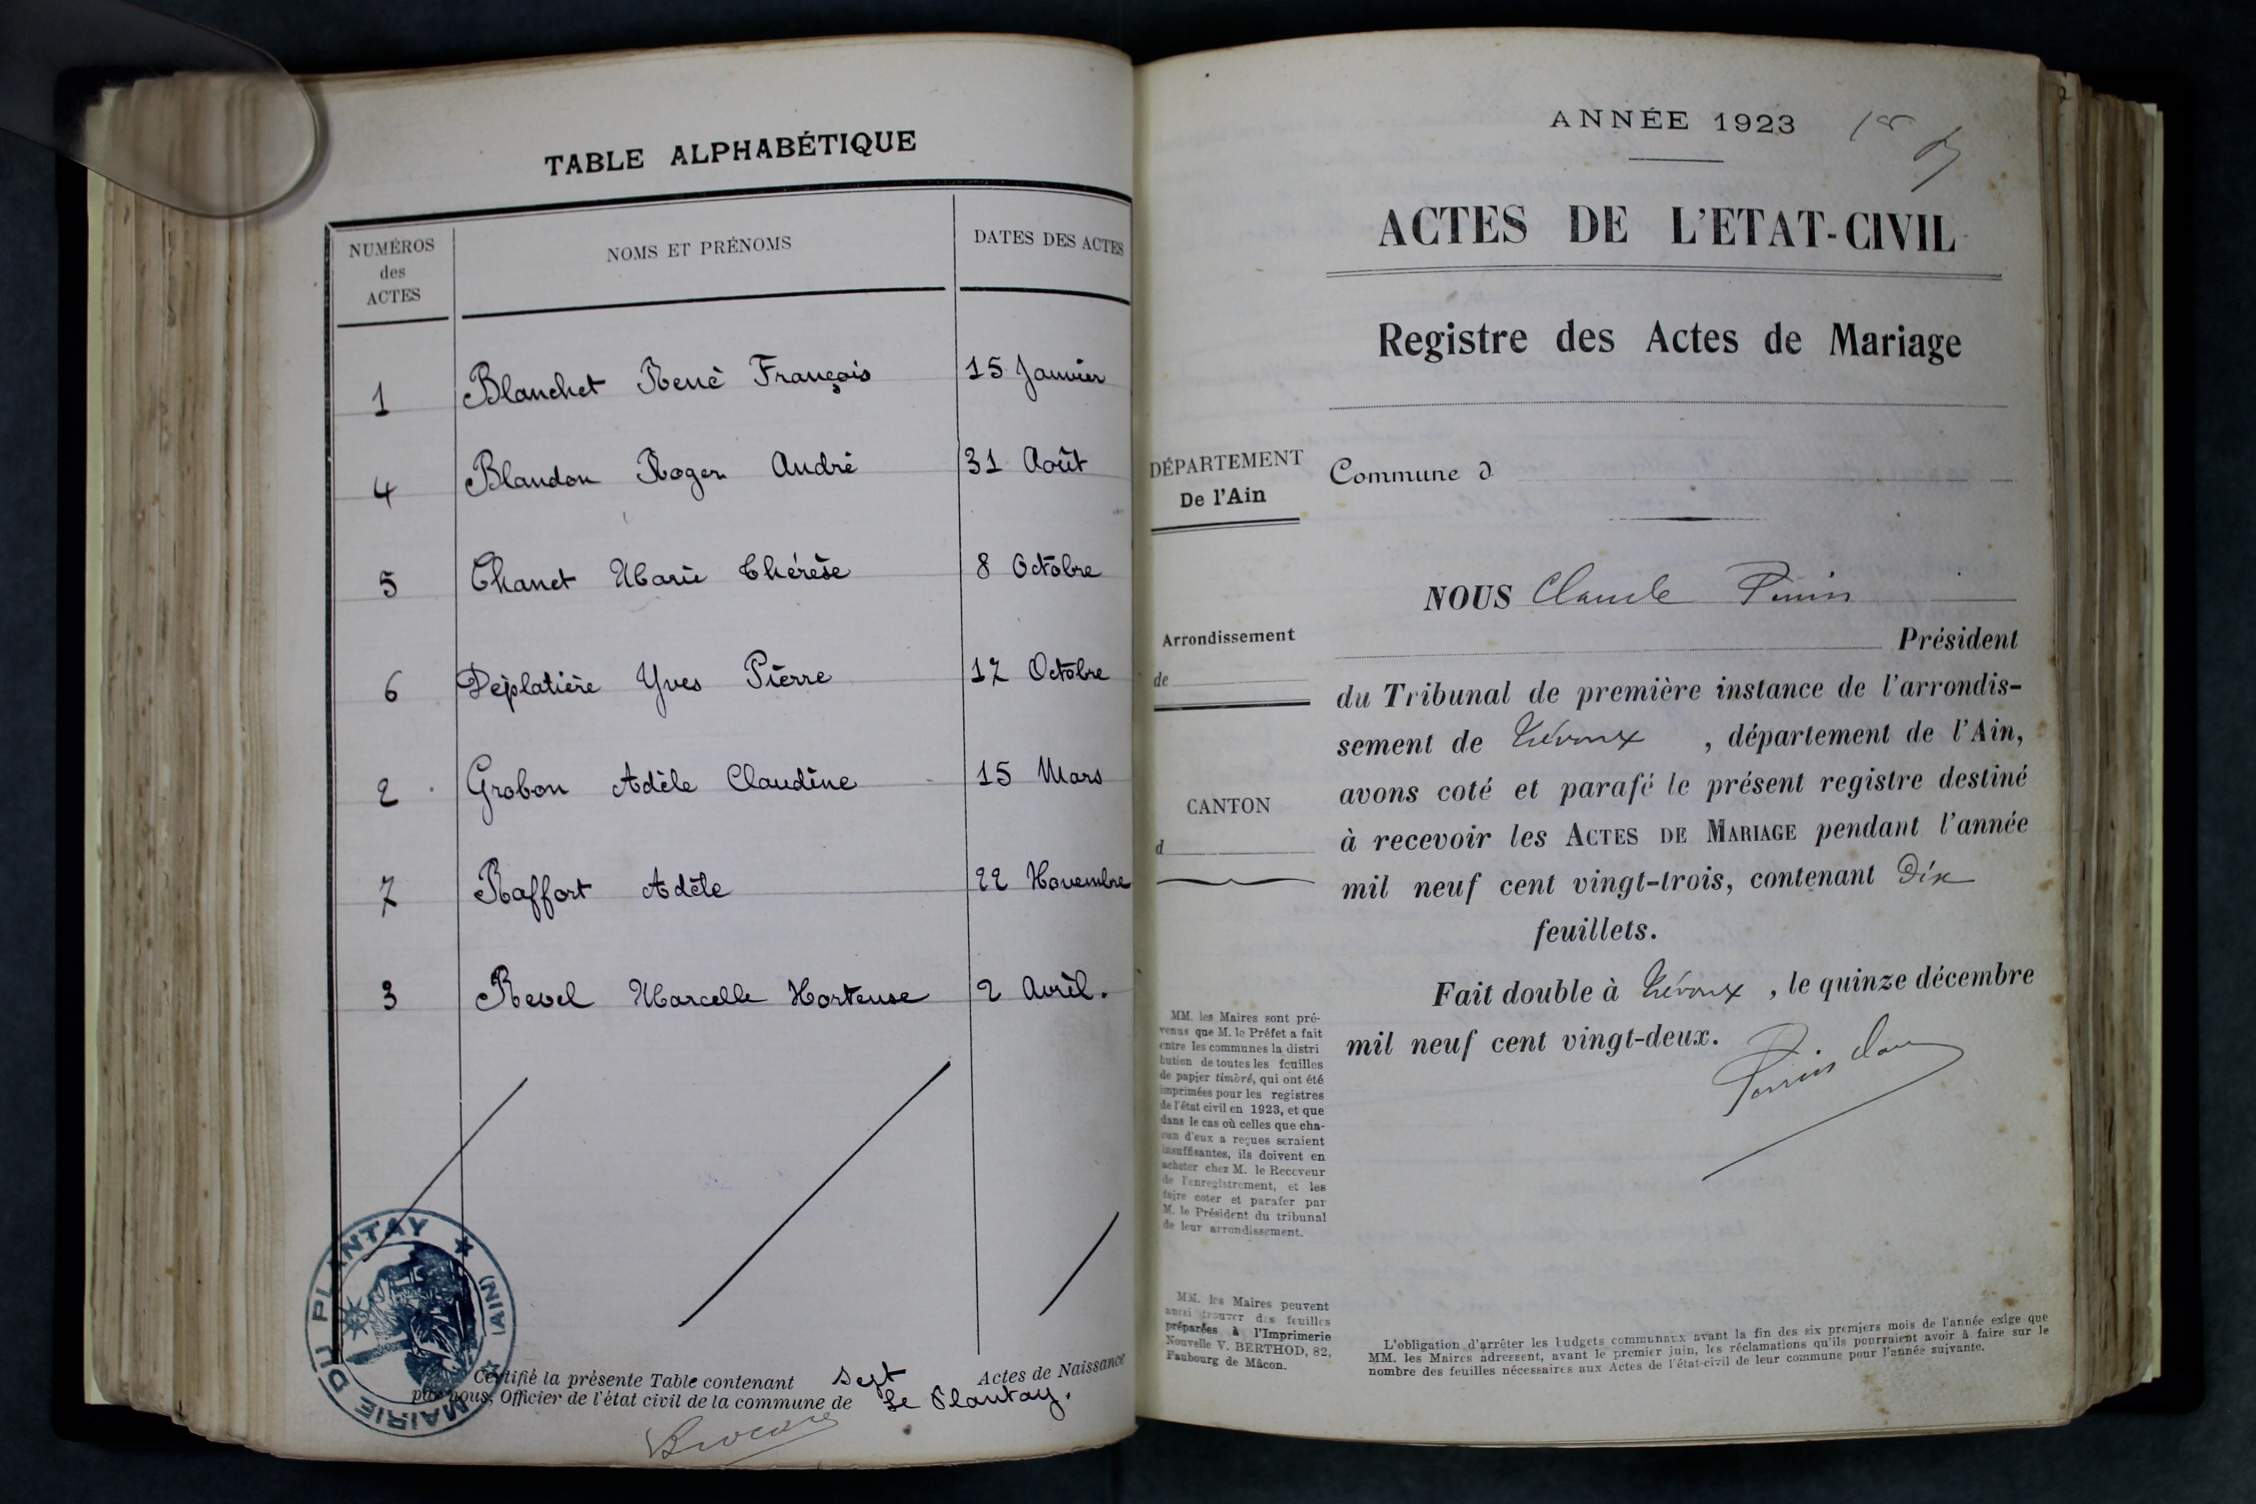 TABLE ALPHABÉTIQUE
NUMÉROS des ACTES NOMS ET PRÉNOMS DATES DES ACTES
1 Blanchet René François 15 Janvier
4 Blandon Roger André 31 Août
5 Chanet Marie Thérèse 8 Octobre
6 Déplatière Yves Pierre 17 Octobre
2 Grobon Adèle Claudine 15 Mars
7 Raffort Adèle 22 Novembre
3 Revel Marcelle Hortense 2 Avril.
MAIRIE DU PLANTAY (AIN)
Certifié la présente Table contenant sept Actes de Naissance
par nous, Officier de l'état civil de la commune de Le Plantay.
ANNÉE 1923 1er
ACTES DE L'ETAT-CIVIL
Registre des Actes de Mariage
DÉPARTEMENT
De l'Ain
Arrondissement
de
CANTON
d
MM. les Maires sont pré-
venus que M. le Préfet a fait
entre les communes la distri
bution de toutes les feuilles
de papier timbré, qui ont été
imprimées pour les registres
de l'état civil en 1923, et que
dans le cas où celles que cha-
cun d'eux a reçues seraient
insuffisantes, ils doivent en
acheter chez M. le Receveur
de l'enregistrement, et les
faire coter et parafer par
M. le Président du tribunal
de leur arrondissement.
MM. les Maires peuvent
aussi trouver des feuilles
préparées à l'Imprimerie
Nouvelle V. BERTHOD, 82,
Faubourg de Mâcon.
Commune d
NOUS Claude
Président
du Tribunal de première instance de l'arrondis-
sement de Trévoux , département de l'Ain,
avons coté et parafé le présent registre destiné
à recevoir les ACTES DE MARIAGE pendant l'année
mil neuf cent vingt-trois, contenant Dix
feuillets.
Fait double à Trévoux , le quinze décembre
mil neuf cent vingt-deux.
L'obligation d'arrêter les budgets communaux avant la fin des six premiers mois de l'année exige que
MM. les Maires adressent, avant le premier juin, les réclamations qu'ils pourraient avoir à faire sur le
nombre des feuilles nécessaires aux Actes de l'état-civil de leur commune pour l'année suivante.